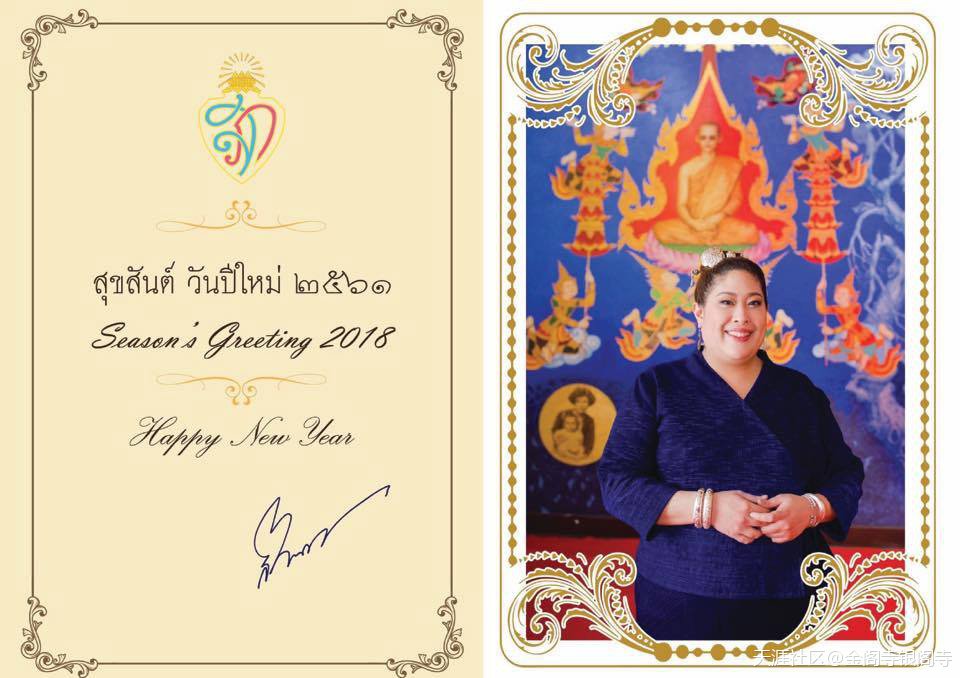 สุขสันต์ วันปีใหม่ ๒๕๖๑
Season's Greeting 2018
Happy New Year
天涯社区@金阁寺银阁寺